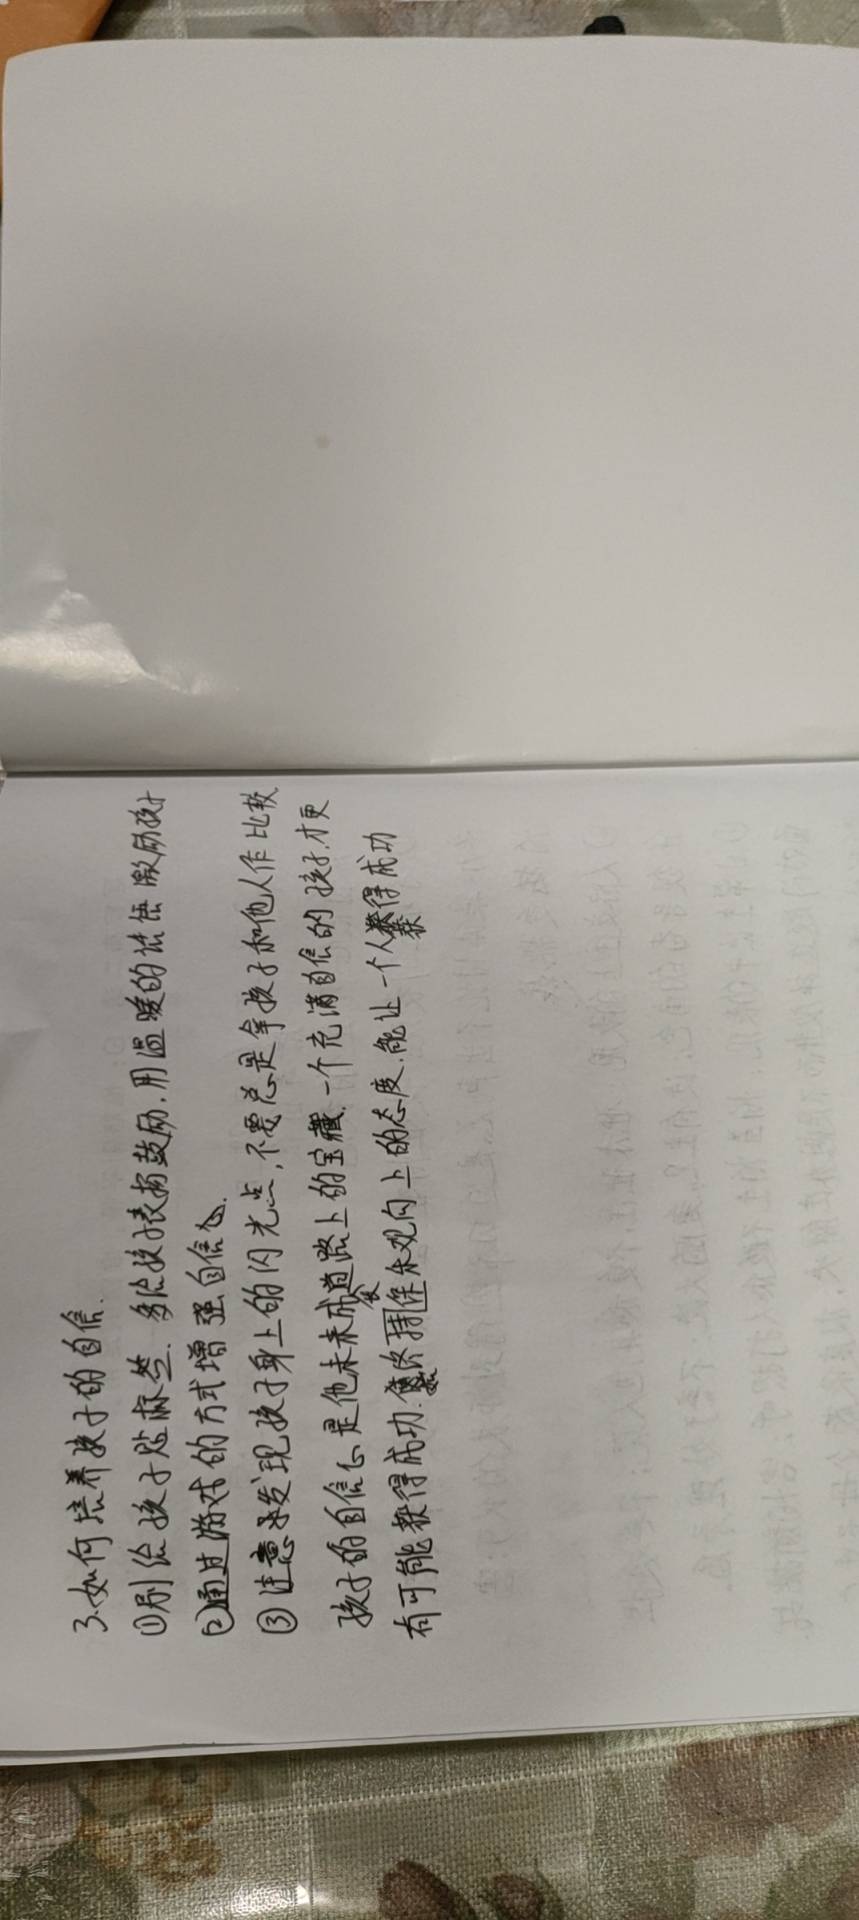 3.如何培养孩子的自信.
①别给孩子贴标签.多给孩子表扬鼓励.用温暖的话语激励孩子
②通过游戏的方式增强自信心.
③注意发现孩子身上的闪光点,不要总是拿孩子和他人作比较
孩子的自信心是他未来成长道路上的宝藏.一个充满自信的孩子.才更
有可能获得成功.始终持续乐观向上的态度.能让一个人获得成功